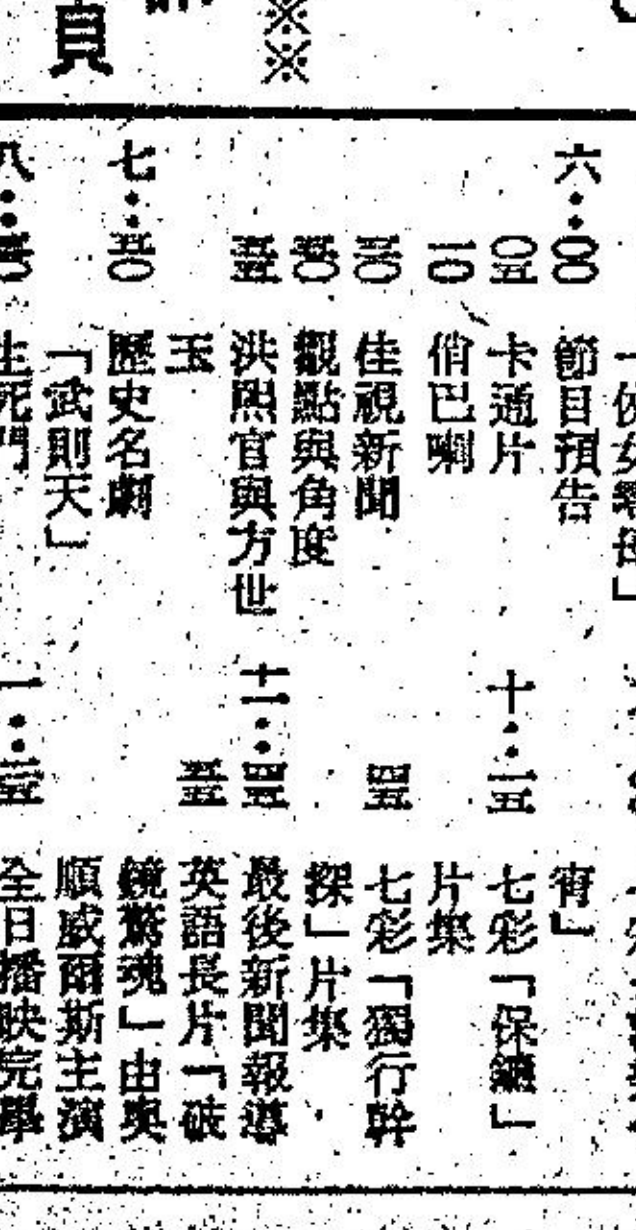 ※※
六：〇〇 節目預告
〇五 卡通片
一〇 俏巴喇
三〇 佳視新聞
五〇 觀點與角度
五五 洪熙官與方世
玉
七：五〇 歷史名劇
「武則天」
生死門
宵」
十：一五 七彩「保鑣」
片集
四五 七彩「獨行幹
探」片集
十一：四五 最後新聞報導
五五 英語長片「破
鏡驚魂」由奧
順威爾斯主演
全日播映完畢